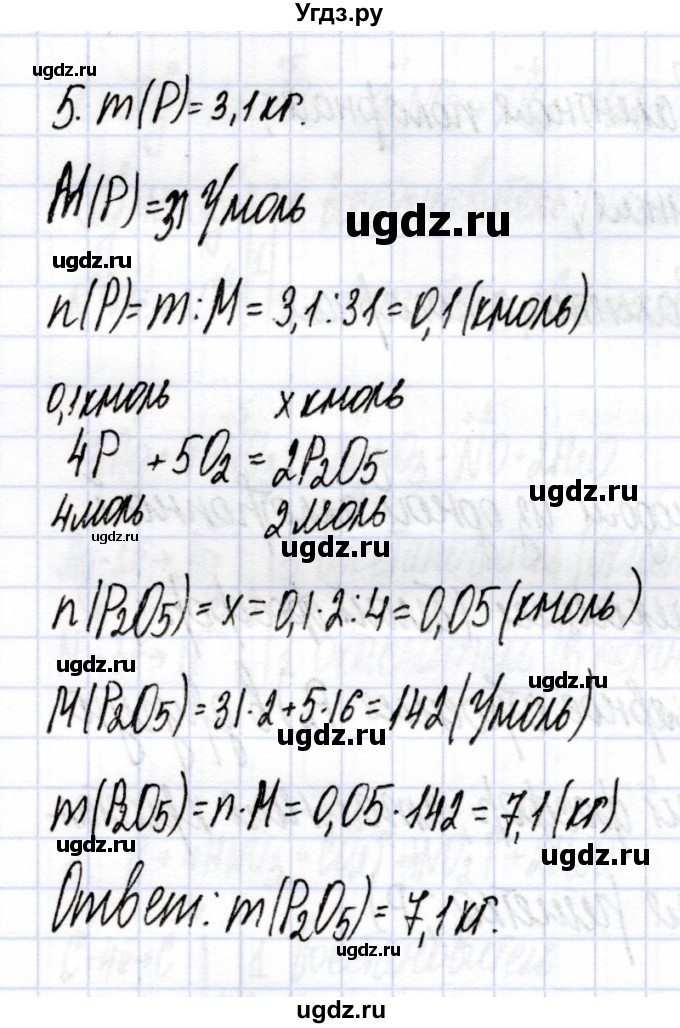 Угдз.ру
ugdz.ru
5. m(P)=3,1кг.
M(P)=31 г/моль
ugdz.ru
ugdz.ru
n(P)=m:M=3,1:31=0,1(кмоль)
0,1кмоль x кмоль
4P +5O₂=2P₂O₅
ugdz.ru
4моль 2моль
ugdz.ru
ugdz.ru
n(P₂O₅)=x=0,1·2:4=0,05(кмоль)
ugdz.ru
ugdz.ru
M(P₂O₅)=31·2+5·16=142(г/моль)
ugdz.ru
m(P₂O₅)=n·M=0,05·142=7,1(кг)
ugdz.ru
ugdz.ru
Ответ: m(P₂O₅)=7,1кг.
ugdz.ru
ugdz.ru